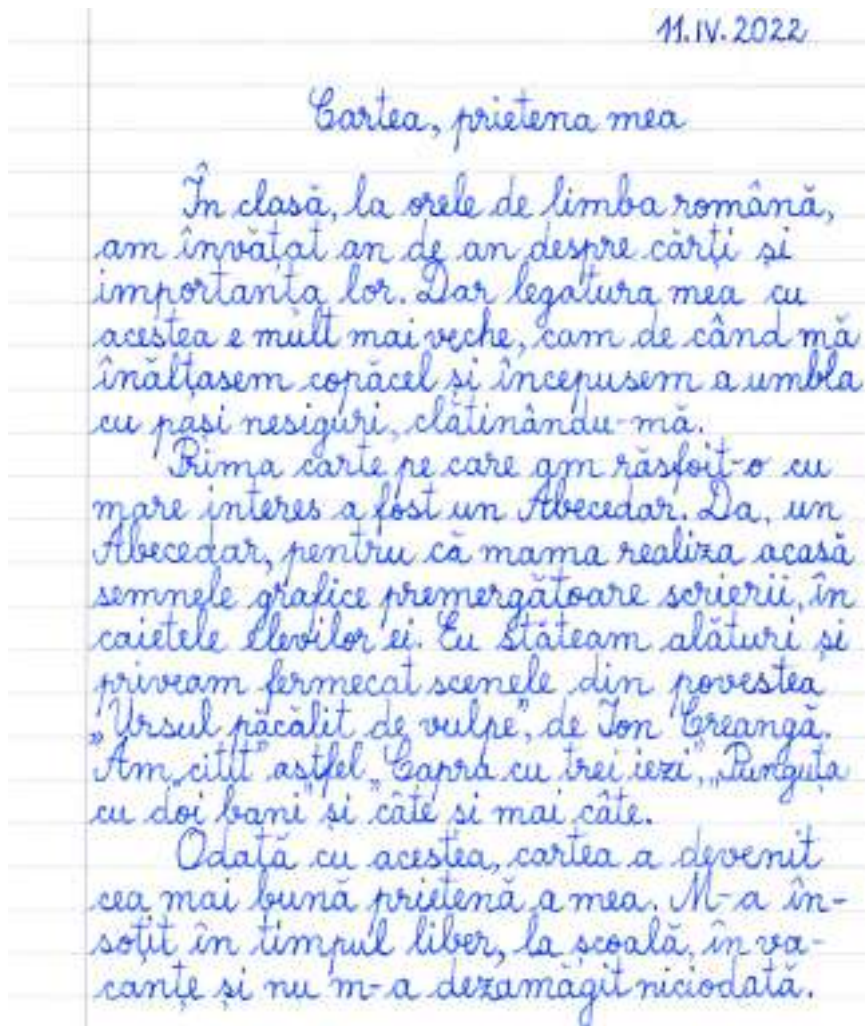 11.IV.2022
Cartea, prietena mea
În clasă, la orele de limba română,
am învățat an de an despre cărți și
importanța lor. Dar legătura mea cu
acestea e mult mai veche, cam de când mă
înălțasem copăcel și începusem a umbla
cu pași nesiguri, clătinându-mă.
Prima carte pe care am răsfoit-o cu
mare interes a fost un Abecedar. Da, un
Abecedar, pentru că mama realiza acasă
semnele grafice premergătoare scrierii, în
caietele elevilor ei. Eu stăteam alături și
priveam fermecat scenele din povestea
„Ursul păcălit de vulpe”, de Ion Creangă.
Am „citit” astfel „Capra cu trei iezi”, „Punguța
cu doi bani” și câte și mai câte.
Odată cu acestea, cartea a devenit
cea mai bună prietenă a mea. M-a în-
soțit în timpul liber, la școală, în va-
canțe și nu m-a dezamăgit niciodată.